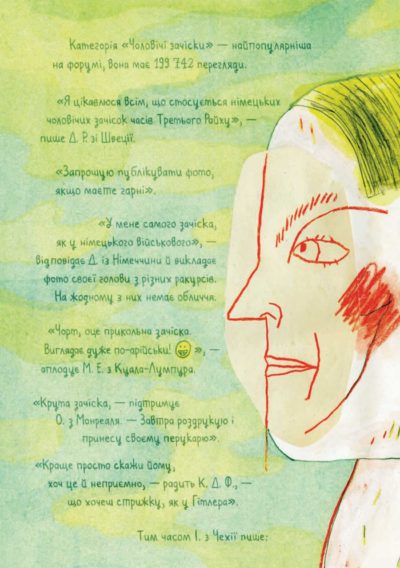 Категорія «Чоловічі зачіски» — найпопулярніша
на форумі, вона має 199 742 перегляди.
«Я цікавлюся всім, що стосується німецьких
чоловічих зачісок часів Третього Райху», —
пише Д. Р. зі Швеції.
«Запрошую публікувати фото,
якщо маєте гарні».
«У мене самого зачіска,
як у німецького військового», —
відповідає Д. із Німеччини й викладає
фото своєї голови з різних ракурсів.
На жодному з них немає обличчя.
«Чорт, оце прикольна зачіска.
Виглядає дуже по-арійськи! 😀», —
аплодує М. Е. з Куала-Лумпура.
«Крута зачіска, — підтримує
О. з Монреаля. — Завтра роздрукую і
принесу своєму перукарю».
«Краще просто скажи йому,
хоч це й неприємно, — радить К. Д. Ф., —
що хочеш стрижку, як у Гітлера».
Тим часом І. з Чехії пише: